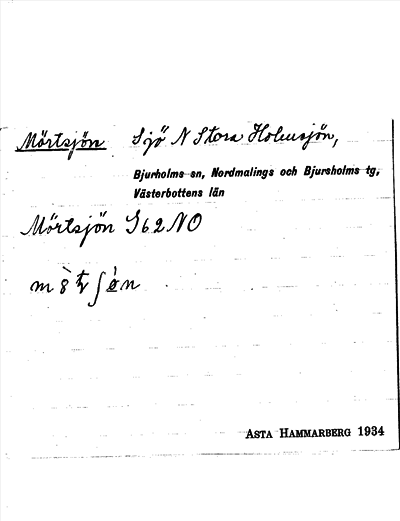 Mörtsjön Sjö N Stora Holmsjön,
Bjurholms sn, Nordmalings och Bjursholms tg,
Västerbottens län
Mörtsjön S62NO
ASTA HAMMARBERG 1934